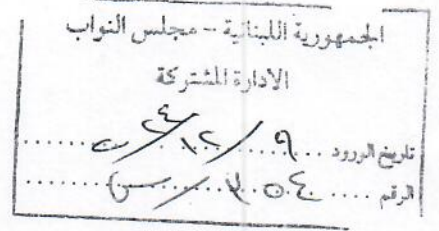 الجمهورية اللبنانية - مجلس النواب
الادارة المشتركة
تاريخ الورود ... ٩ / ١٢ / ......
الرقم .... ٣٥٤ / س ......